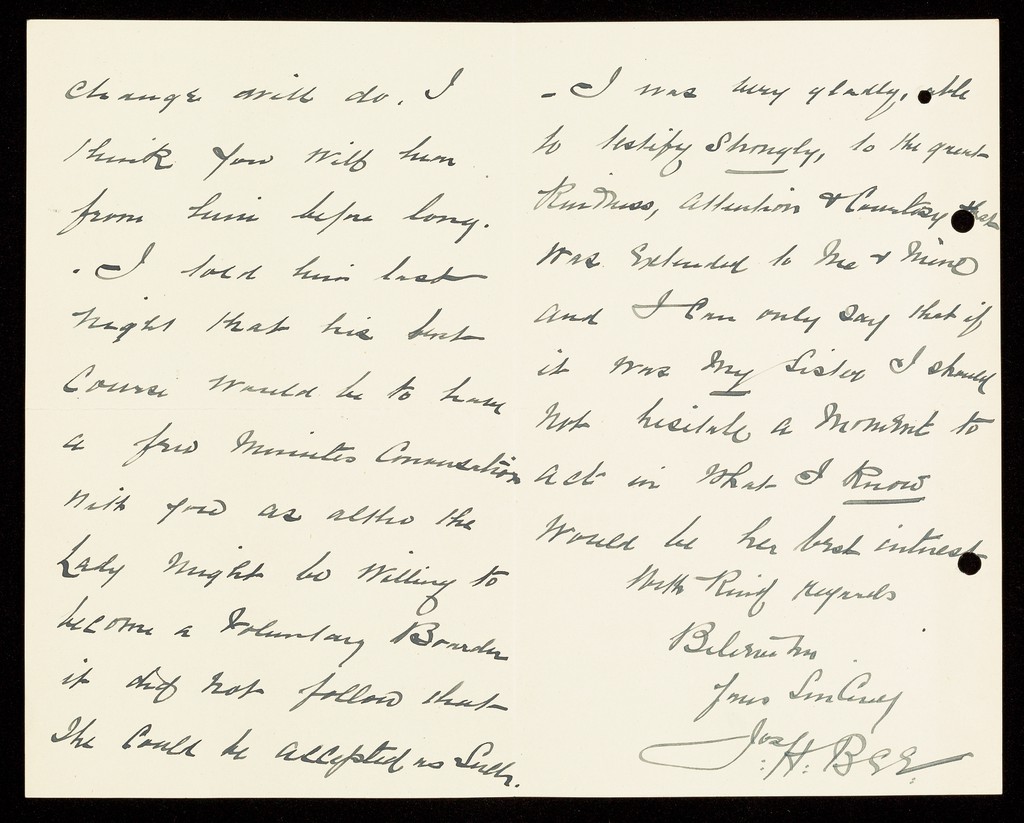 change will do. I
think you will hear
from him before long.
. I told him last
night that his best
Course would be to have
a few Minutes Conversation
with you as altho the
Lady Might be Willing to
become a Voluntary Boarder
it did not follow that
She Could be accepted as Such.
- I was very gladly, able
to testify Strongly, to the great
Kindness, Attention & Courtesy that
was Extended to Me & Mine
and I Can only say that if
it was My Sister I should
Not hesitate a Moment to
act in What I Know
Would be her best interest
With Kind regards
Believe me
Yours Sincerely
Jos: H: BEE.